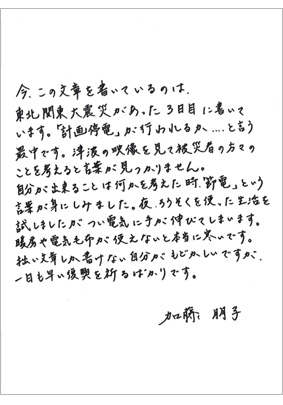 今、この文章を書いているのは、
東北関東大震災があった3日目に書いて
います。「計画停電」が行われるか....と言う
最中です。津波の映像を見て被災者の方々の
ことを考えると言葉が見つかりません。
自分が出来ることは何かを考えた時、「節電」という
言葉が身にしみました。夜、ろうそくを使った生活を
試しましたがつい電気に手が伸びてしまいます。
暖房や電気毛布が使えないと本当に寒いです。
拙い文章しか書けない自分がもどかしいですが、
一日も早い復興を祈るばかりです。
加藤 朋子